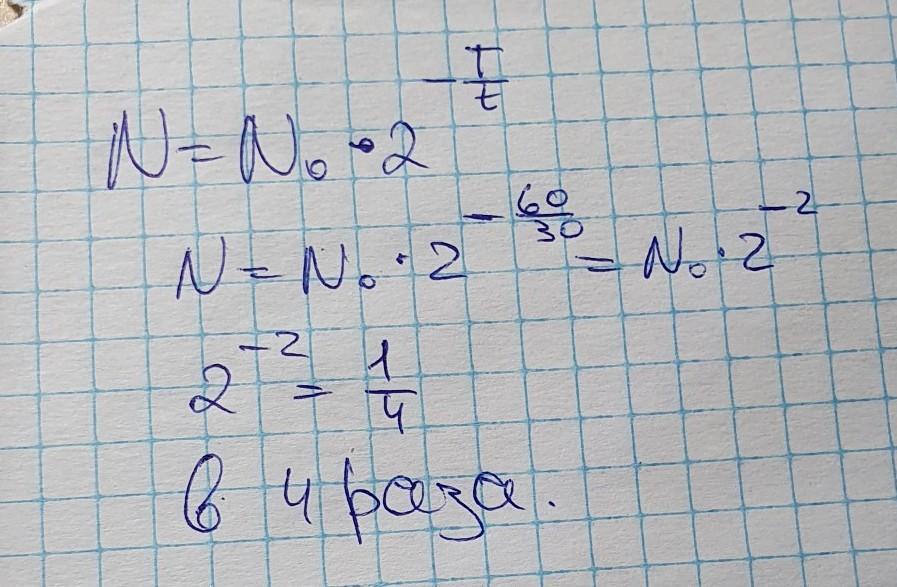 N = N₀ • 2^(-T/t)
N = N₀ · 2^(-60/30) = N₀ · 2^(-2)
2^(-2) = 1/4
в 4 раза.